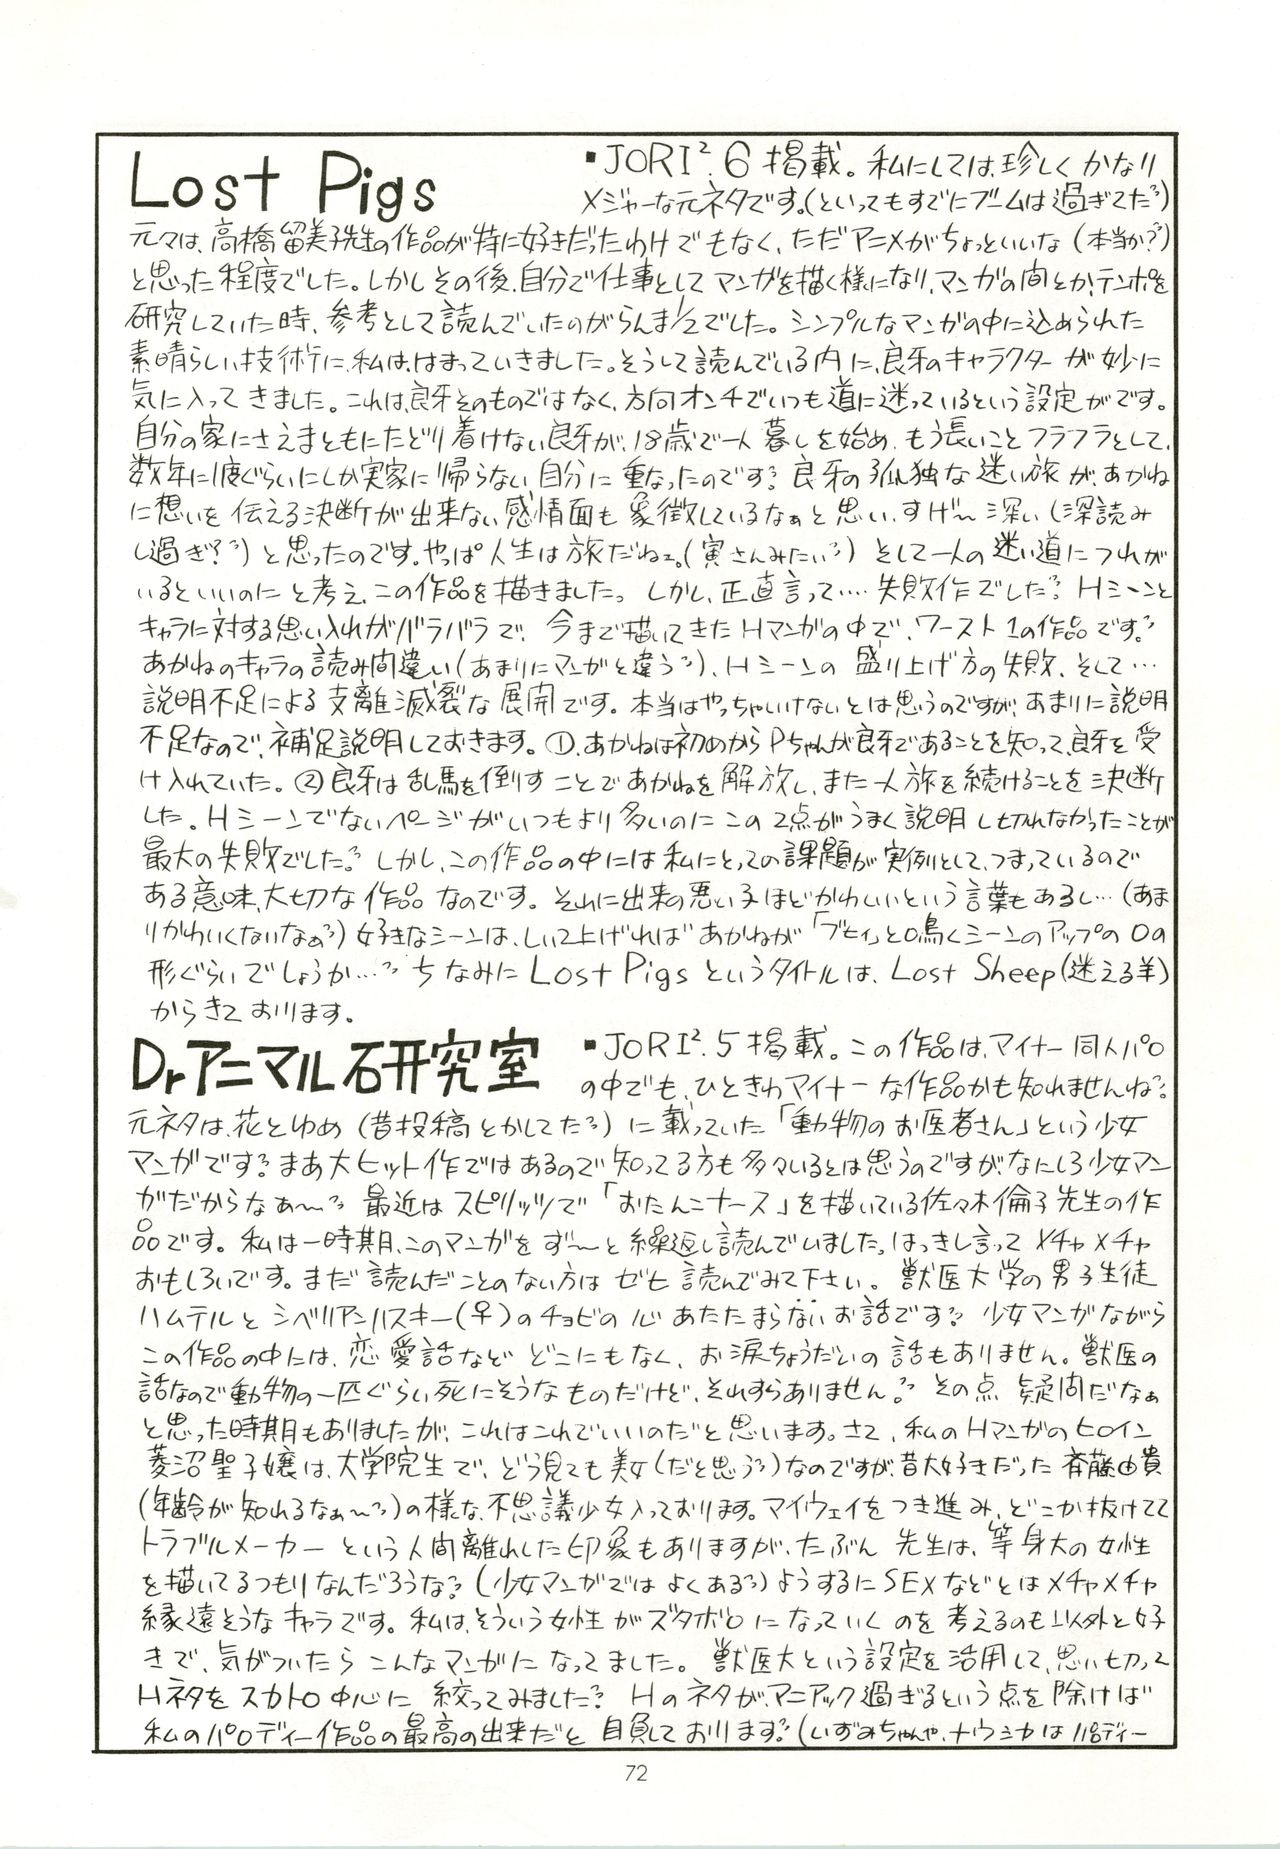 Lost Pigs
▪JORI².6 掲載。私にしては、珍しくかなり
メジャーな元ネタです。(といってもすでにブームは過ぎてた〃)
元々は、高橋留美子先生の作品が特に好きだったわけでもなく、ただアニメがちょっといいな(本当か?〃)
と思った程度でした。しかしその後、自分で仕事としてマンガを描く様になり、マンガの間とか、テンポを
研究していた時、参考として読んでいたのがらんま1/2でした。シンプルなマンガの中に込められた
素晴らしい技術に、私は、はまっていきました。そうして読んでいる内に、良牙のキャラクターが妙に
気に入ってきました。これは、良牙そのものではなく、方向オンチでいつも道に迷っているという設定がです。
自分の家にさえまともにたどり着けない良牙が、18歳で一人暮しを始め、もう長いことフラフラとして、
数年に1度ぐらいにしか実家に帰らない自分に重なったのです〃。良牙の孤独な迷い旅が、あかね
に想いを伝える決断が出来ない感情面も象徴しているなぁと思い、すげ〜深い(深読み
し過ぎ?〃)と思ったのです。やっぱ人生は旅だねェ。(寅さんみたい〃)そして一人の迷い道につれが
いるといいのにと考え、この作品を描きました。しかし、正直言って‥‥失敗作でした〃。Hシーンと
キャラに対する思い入れがバラバラで、今まで描いてきたHマンガの中で、ワースト1の作品です。〃
あかねのキャラの読み間違い(あまりにマンガと違う〃)、Hシーンの盛り上げ方の失敗、そして…
説明不足による支離滅裂な展開です。本当はやっちゃいけないとは思うのですが、あまりに説明
不足なので、補足説明しておきます。①、あかねは初めからPちゃんが良牙であることを知って、良牙を受
け入れていた。②良牙は乱馬を倒すことであかねを解放し、また一人旅を続けることを決断
した。Hシーンでないページがいつもより多いのにこの2点がうまく説明し切れなかったことが
最大の失敗でした〃。しかし、この作品の中には私にとっての課題が実例として、つまっているので
ある意味、大切な作品なのです。それに出来の悪い子ほどかわいいという言葉もあるし…(あま
りかわいくないなぁ〃)好きなシーンは、しいて上げれば あかねが「ブヒィ」と鳴くシーンのアップの口の
形ぐらいでしょうか…〃 ちなみに Lost Pigs というタイトルは、Lost Sheep(迷える羊)
からきております。
Drアニマル石研究室
▪JORI².5 掲載。この作品は、マイナー同人パロ
の中でも、ひときわマイナーな作品かも知れませんね〃。
元ネタは、花とゆめ(昔投稿とかしてた〃)に載っていた「動物のお医者さん」という少女
マンガです〃。まあ大ヒット作ではあるので知ってる方も多々いるとは思うのですが、なにしろ少女マン
ガだからなぁ〜〃 最近はスピリッツで「おたんこナース」を描いている佐々木倫子先生の作
品です。私は一時期、このマンガをず〜と繰返し読んでいました。はっきし言ってメチャメチャ
おもしろいです。まだ読んだことのない方はゼヒ読んでみて下さい。獣医大学の男子生徒
ハムテルとシベリアンハスキー(♀)のチョビの心あたたまらないお話です〃 少女マンガながら
この作品の中には、恋愛話などどこにもなく、お涙ちょうだいの話もありません。獣医の
話なので動物の一匹ぐらい死にそうなものだけど、それすらありません。〃 その点疑問だなぁ
と思った時期もありましたが、これはこれでいいのだと思います。さて、私のHマンガのヒロイン
菱沼聖子嬢は、大学院生で、どう見ても美女(だと思う〃)なのですが、昔大好きだった斉藤由貴
(年齢が知れるなぁ〜〃)の様な、不思議少女入っております。マイウェイをつき進み、どこか抜けてて
トラブルメーカーという人間離れした印象もありますが、たぶん先生は、等身大の女性
を描いてるつもりなんだろうな〃(少女マンガではよくある〃)ようするにSEXなどとはメチャメチャ
縁遠そうなキャラです。私は、そういう女性がズタボロになっていくのを考えるのも以外と好
きで、気がついたらこんなマンガになってました。獣医大という設定を活用して、思い切って
Hネタをスカトロ中心に絞ってみました〃 Hのネタがマニアック過ぎるという点を除けば
私のパロディー作品の最高の出来だと自負しております〃(いずみちゃんや、ナウシカはパロディー
72